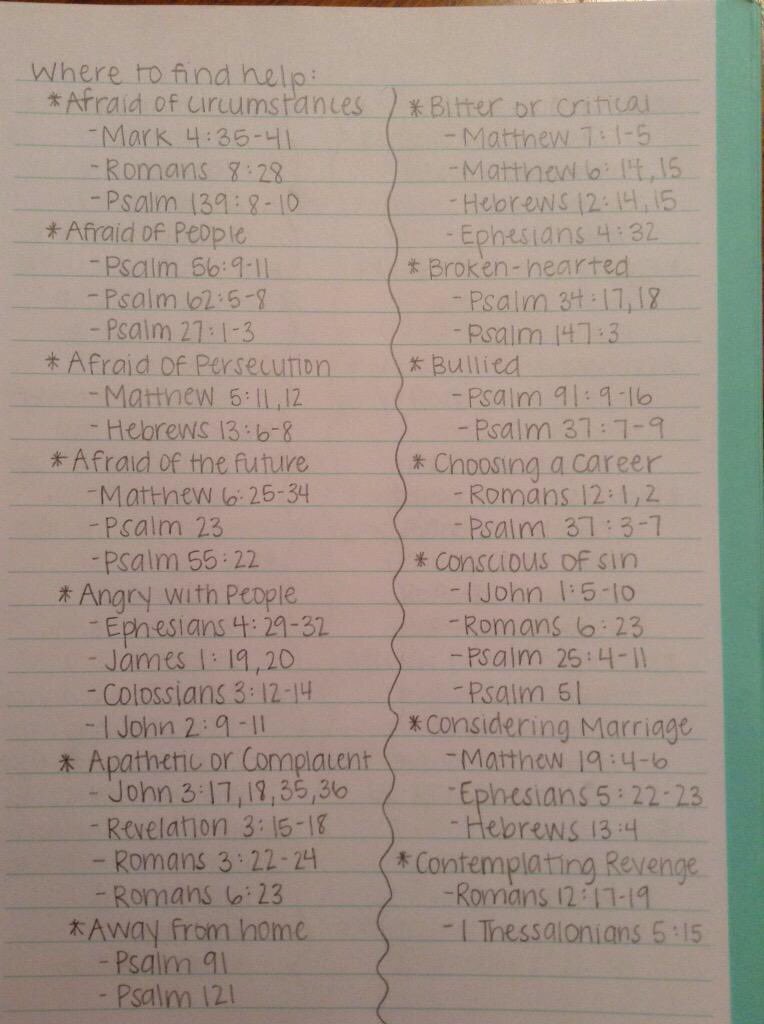 Where to find help:
*Afraid of circumstances
-Mark 4:35-41
-Romans 8:28
-Psalm 139:8-10
*Afraid of People
-Psalm 56:9-11
-Psalm 62:5-8
-Psalm 27:1-3
*Afraid of Persecution
-Matthew 5:11,12
-Hebrews 13:6-8
*Afraid of the future
-Matthew 6:25-34
-Psalm 23
-Psalm 55:22
*Angry with People
-Ephesians 4:29-32
-James 1:19,20
-Colossians 3:12-14
-1 John 2:9-11
*Apathetic or Complacent
-John 3:17,18,35,36
-Revelation 3:15-18
-Romans 3:22-24
-Romans 6:23
*Away from home
-Psalm 91
-Psalm 121
*Bitter or critical
-Matthew 7:1-5
-Matthew 6:14,15
-Hebrews 12:14,15
-Ephesians 4:32
*Broken-hearted
-Psalm 34:17,18
-Psalm 147:3
*Bullied
-Psalm 91:9-16
-Psalm 37:7-9
*Choosing a career
-Romans 12:1,2
-Psalm 37:3-7
*Conscious of sin
-1 John 1:5-10
-Romans 6:23
-Psalm 25:4-11
-Psalm 51
*Considering Marriage
-Matthew 19:4-6
-Ephesians 5:22-23
-Hebrews 13:4
*Contemplating Revenge
-Romans 12:17-19
-1 Thessalonians 5:15